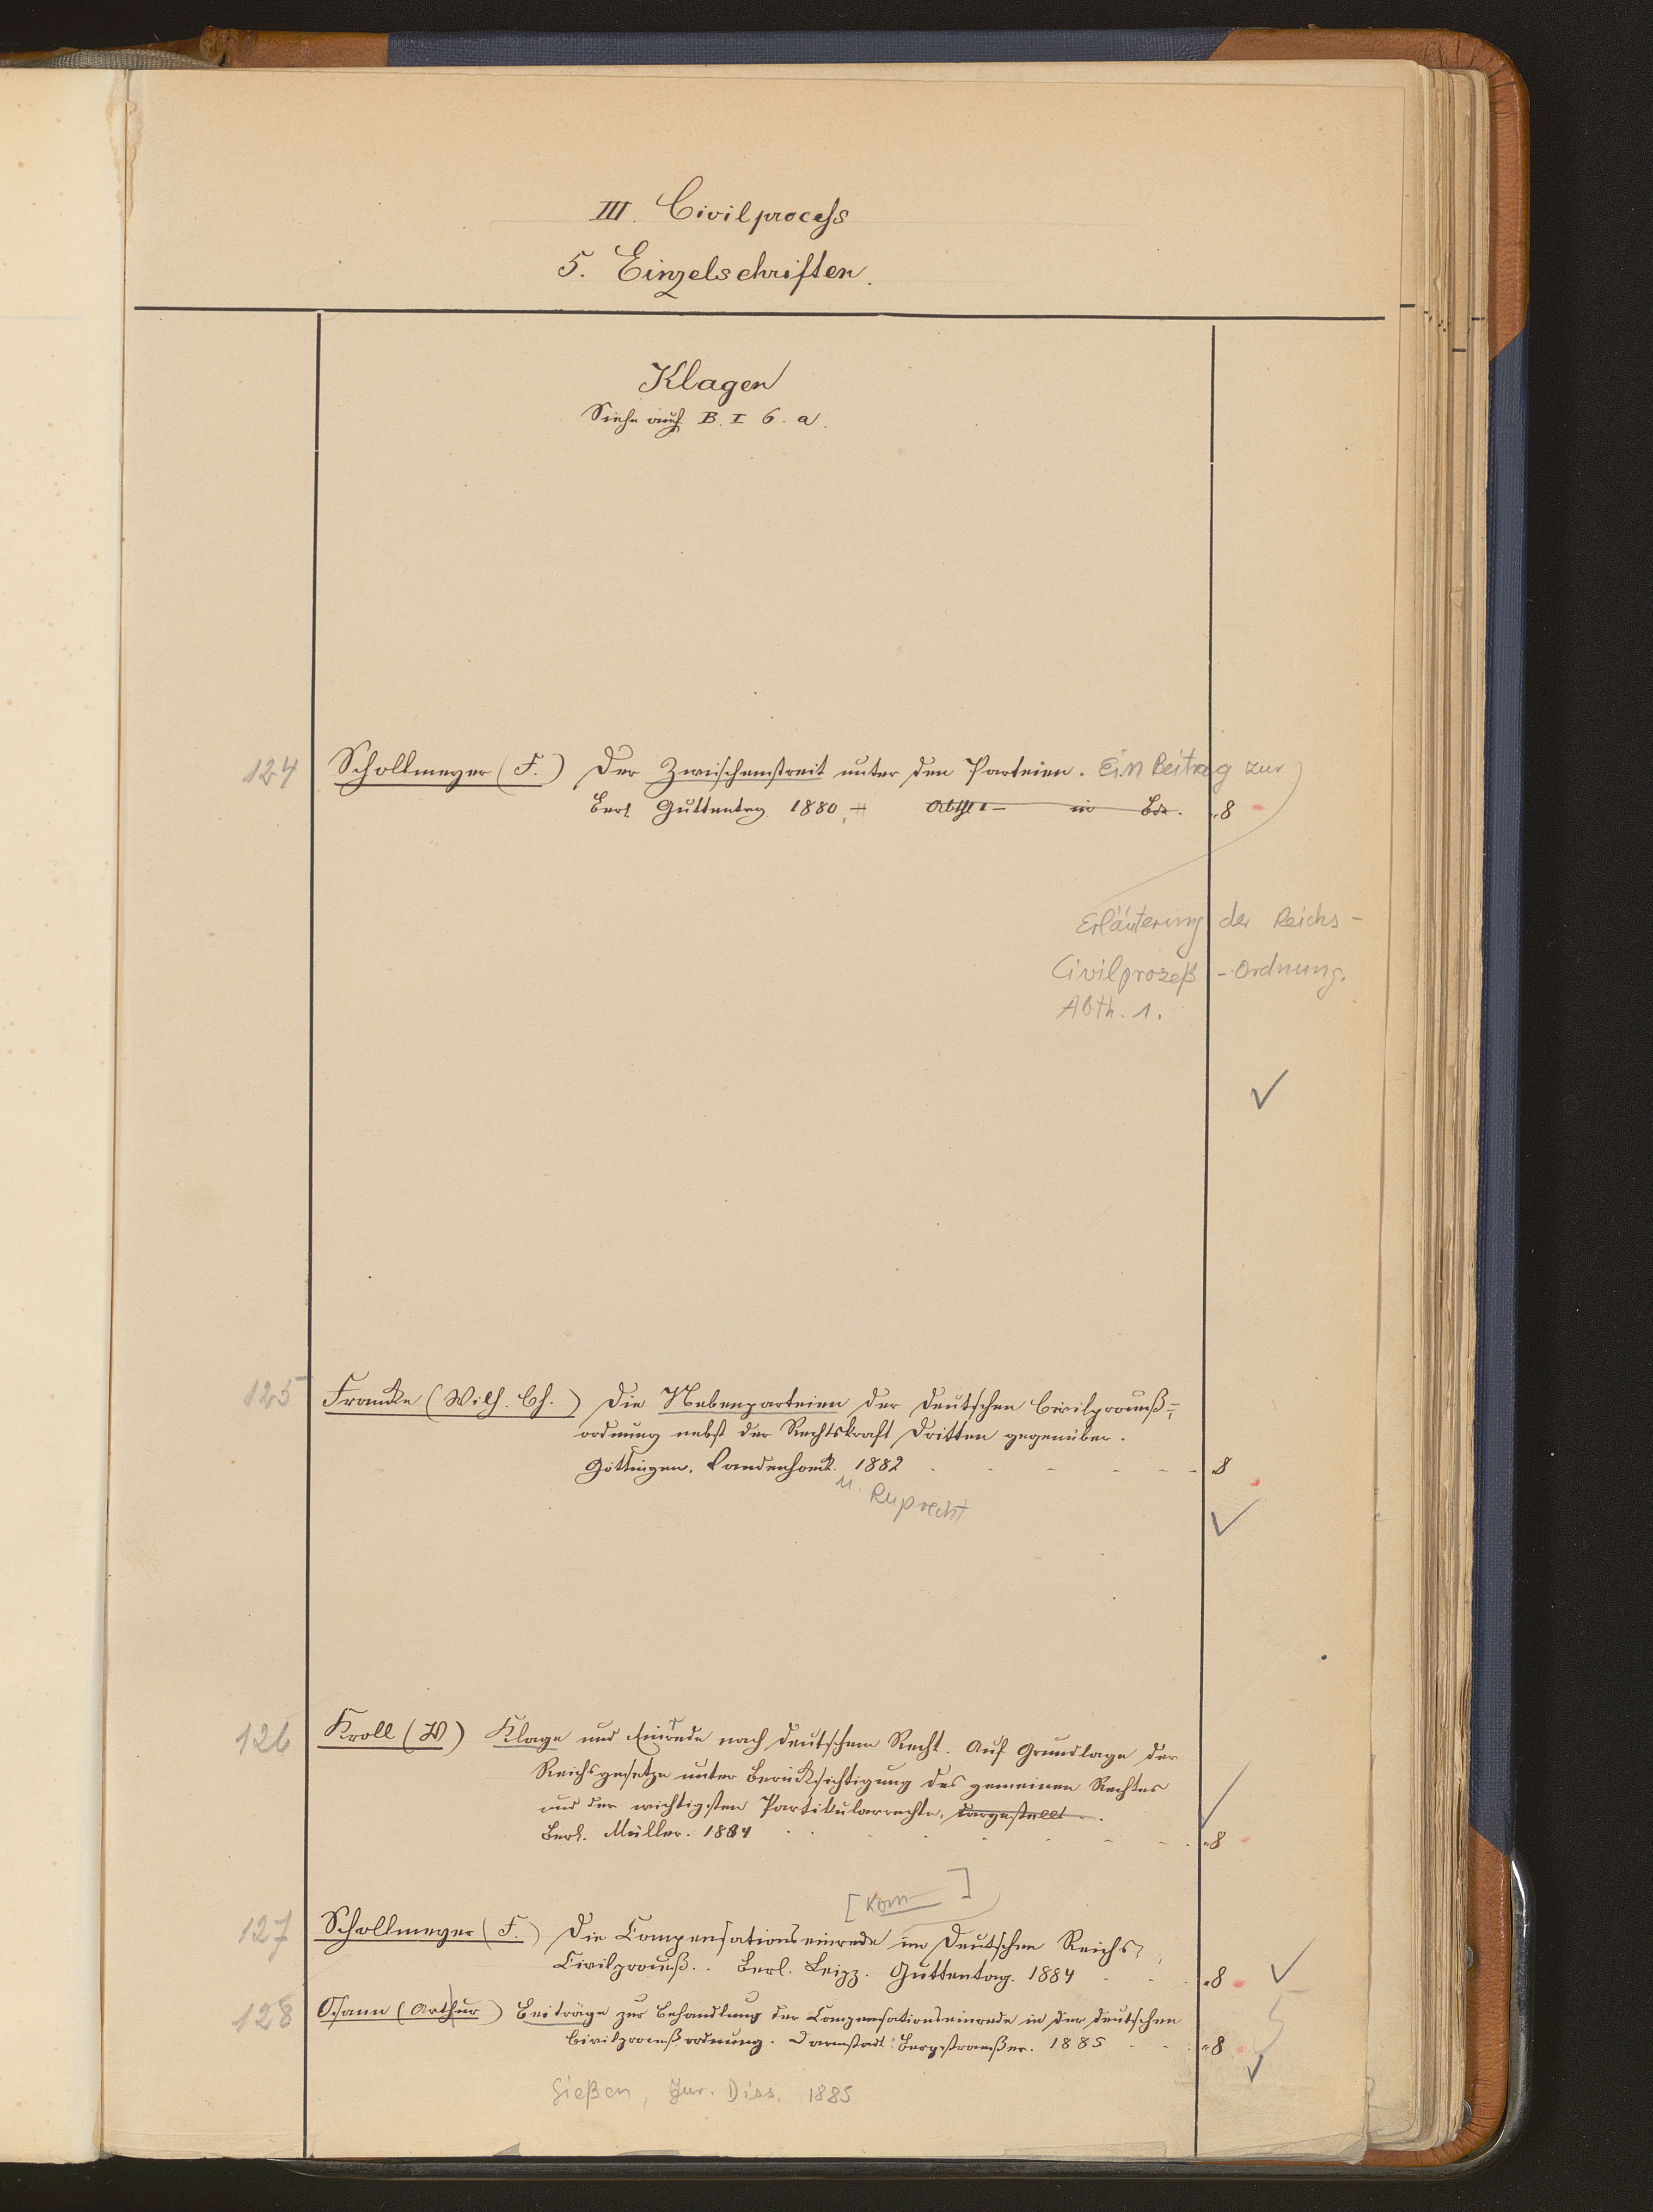 III. Civilprocess
5. Einzelschriften.
Klagen
Siehe auch B. I 6. a.
124 Schollmeyer (F.) Der Zwischenstreit unter den Parteien. Ein Beitrag zur
Berl. Guttentag 1880. Abth 1 in Bd. 8
Erläuterung der Reichs-
Civilprozeß-Ordnung.
Abth. 1.
125 Francke (Wilh. Ch.) Die Nebenparteien der deutschen Civilproceß-
ordnung nebst der Rechtskraft Dritten gegenüber.
Göttingen. Vandenhoeck. 1882 8
u. Ruprecht
126 Kroll (W) Klage und Einrede nach deutschem Recht. Auf Grundlage der
Reichsgesetze unter Berücksichtigung des gemeinen Rechtes
und der wichtigsten Partikularrechte, dargestellt.
Berl. Müller. 1884 8
[Kom]
127 Schollmeyer (F.) Die Compensationseinrede im Deutschen Reichs-
Civilproceß.. Berl. Leipz. Guttentag. 1884 8
128 Osann (Arthur) Beiträge zur Behandlung der Compensationseinrede in der deutschen
Civilproceßordnung. Darmstadt: Bergsträßer. 1885 8
Gießen, Jur. Diss. 1885